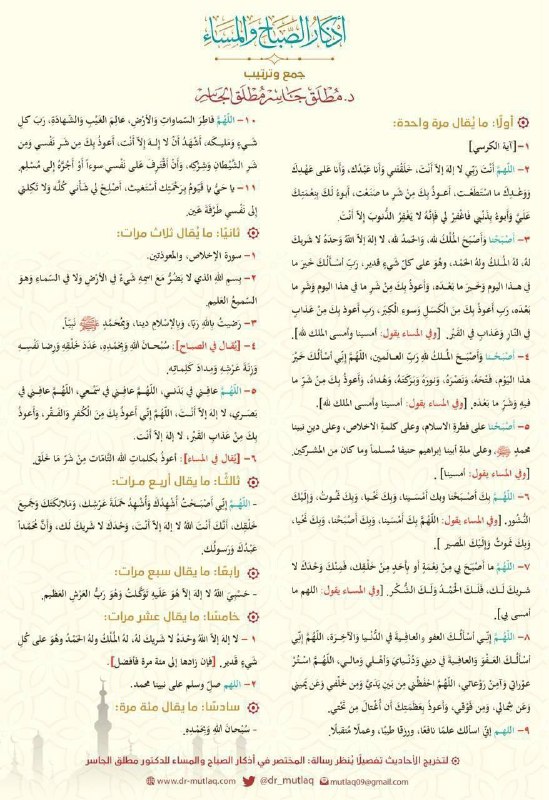 أذكار الصباح والمساء
جمع وترتيب
د. مُطْلَق جَاسِر مُطْلَق الجَاسِر
أولًا: ما يُقال مرة واحدة:
١- [آية الكرسي]
٢- اللَّهُمَّ أنتَ رَبِّي لا إلهَ إلاَّ أنْتَ، خَلَقْتَني وأنا عَبْدُك، وأنا عَلى عَهْدِكَ
وَوَعْدِكَ ما اسْتَطَعْت، أعوذُ بِكَ مِنْ شَر ما صنَعْت، أبوءُ لَكَ بِنِعْمَتِكَ
عَلَيَّ وأبوءُ بِذَنْبي فاغْفِرْ لي فإنَّهُ لا يَغْفِرُ الذُّنوبَ إلاَّ أنْتَ
٣- أصْبَحْنا وأَصْبَحَ المُلْكُ لله، والحَمدُ لله، لا إلهَ إلاَّ اللهُ وَحدَهُ لا شَريكَ
لهُ، لهُ المُلكُ ولهُ الحَمْد، وهُوَ على كلّ شَيءٍ قدير، رَبِّ أسْأَلُكَ خَيرَ ما
في هذا اليوم وَخَيرَ ما بَعْدَه، وَأَعوذُ بِكَ مِنْ شَر ما في هذا اليوم وَشَرِّ ما
بَعْدَه، رَبِّ أَعوذُ بِكَ مِنَ الْكَسَلِ وَسوءِ الْكِبَر، رَبِّ أَعوذُ بِكَ مِنْ عَذابٍ
في النّارِ وَعَذابٍ في القَبْر. [وفي المساء يقول: أمسينا وأمسى الملك لله].
٤- أَصْبَحْنا وَأَصْبَحَ المُلكُ للهِ رَبِّ العالَمين، اللهُمَّ إنِّي أسْأَلُكَ خَيْرَ
هذا اليَوْم، فَتْحَهُ، وَنَصْرَهُ، وَنورَهُ وَبَرَكَتَهُ، وَهُداهُ، وَأَعوذُ بِكَ مِنْ شَرِّ ما
فيهِ وَشَرِّ ما بَعْدَه. [وفي المساء يقول: أمسينا وأمسى الملك لله].
٥- أَصْبَحْنا على فطرةِ الاسلام، وعلى كلمة الاخلاص، وعلى دين نبينا
محمدٍ ﷺ، وعلى ملة أبينا إبراهيم حنيفا مُسلماً وما كان من المشركين.
[وفي المساء يقول: أمسينا].
٦- اللّهُمَّ بِكَ أَصْبَحْنا وبك أَمْسَينا، وبكَ نَحْيا، وبِكَ نَمُوتُ، وَإلَيْكَ
النُّشُور. [وفي المساء يقول: اللهُمَّ بِكَ أَمْسَينا، وبِكَ أَصْبَحْنا، وَبِكَ نَحْيا،
وَبِكَ نموتُ وَإلَيْكَ المصير].
٧- اللّهُمَّ ما أَصْبَحَ بي مِنْ نِعْمَةٍ أو بأحَدٍ مِنْ خلْقِك، فَمِنْكَ وَحْدَكَ لا
شريكَ لَك، فَلَكَ الحَمْدُ وَلَكَ الشُّكْر. [وفي المساء يقول: اللهم ما
أمسى بي].
٨- اللّهُمَّ إنّي أسأَلُكَ العفو والعافِيةَ في الدُّنْيا وَالآخِرَة، اللهُمَّ إنِّي
أسألُكَ العَفْوَ وَالعافِيةَ في ديني وَدُنيايَ وَأَهْلي وَمالي، اللهُمَّ اسْتُرْ
عوْراتي وَآمِنْ رَوْعاتي، اللهُمَّ احْفَظْني مِن بَينِ يَدَيَّ وَمِن خَلْفي وَعَن يَميني
وعَن شِمالي، وَمِن فَوْقي، وَأَعوذُ بِعَظَمَتِكَ أن أُغْتالَ مِن تَحْتي.
٩- اللهم إنِّي أسألك علمًا نافعًا، ورزقا طيبًا، وعملًا مُتقبلًا.
١٠- اللّهُمَّ فاطِرَ السّماواتِ وَالأرْض، عالمَ الغَيْبِ وَالشَّهادَةِ، رَبَّ كلِّ
شَيءٍ وَمَليكَه، أشهَدُ أَنْ لا إلهَ إلاَّ أَنْت، أَعوذُ بِكَ مِن شَر نَفْسي وَمِن
شَرِ الشَّيْطانِ وَشِرْكِهِ، وأَنْ أَقْتَرِفَ عَلى نَفْسي سوءاً أَوْ أَجُرَّهُ إلى مُسْلِم.
١١- يا حَيُّ يا قَيّومُ بِرَحْمَتِكَ أستغيث، أصْلِحْ لي شَأني كُلَّه ولا تَكِلني
إلى نَفْسي طَرْفَةَ عَين.
ثانيًا: ما يُقال ثلاث مرات:
١- سورة الإخلاص، والمعوذتين.
٢- بِسمِ اللهِ الذي لا يَضُرُّ مَعَ اسمِهِ شَيءٌ في الأَرْضِ وَلا في السّماءِ وَهوَ
السّميعُ العَليم.
٣- رَضيتُ باللهِ رَبًا، وبالإسْلامِ دينا، وبِمُحَمَّدٍ ﷺ نَبيًّا.
٤- [يُقال في الصباح]: سُبْحانَ اللهِ وبِحَمْدِه، عَدَدَ خَلْقِهِ وَرِضا نَفْسِهِ
وَزِنَةَ عَرْشِهِ وَمِدادَ كَلِماتِه.
٥- اللّهُمَّ عافني في بَدَني، اللهُمَّ عافني في سَمْعي، اللهُمَّ عافني في
بَصَري، لا إلهَ إلاَّ أنْتَ. اللهُمَّ إنِّي أَعوذُ بِكَ مِنَ الْكُفرِ والفَقْر، وَأَعوذُ
بِكَ مِنْ عَذابِ القَبْر، لا إلهَ إلاَّ أَنْت.
٦- [يُقال في المساء]: أعوذُ بكلماتِ اللهِ التَّامّات مِنْ شَرِّ مَا خَلَق.
ثالثًا: ما يقال أربع مرات:
- اللّهُمَّ إنِّي أصْبَحْتُ أُشْهِدُكَ وَأُشْهِدُ حَمَلَةَ عَرْشِك، وَمَلائِكَتَكَ وَجَميعَ
خَلْقِك، أَنَّكَ أَنْتَ اللهُ لا إلهَ إلاَّ أنْت، وَحْدَكَ لا شَريكَ لَك، وَأَنَّ مُحَمَّداً
عَبْدُكَ وَرَسولُك.
رابعًا: ما يقال سبع مرات:
- حَسْبِيَ اللهُ لا إلهَ إلاَّ هُوَ عَلَيهِ تَوَكَّلتُ وَهُوَ رَبُّ العَرْشِ العَظيم.
خامسًا: ما يقال عشر مرات:
١- لا إلهَ إلاَّ اللهُ وحْدَهُ لا شَريكَ لهُ، لهُ المُلْكُ ولهُ الحَمْدُ وهُوَ على كُلِّ
شَيءٍ قَدير. [فإن زادها إلى مئة مرة فأفضل].
٢- اللهم صلّ وسلم على نبينا محمد.
سادسًا: ما يقال مئة مرة:
- سُبْحانَ اللهِ وبِحَمْدِه.
لتخريج الأحاديث تفصيلًا يُنظر رسالة: المختصر في أذكار الصباح والمساء للدكتور مطلق الجاسر
www.dr-mutlaq.com @dr_mutlaq mutlaq09@gmail.com